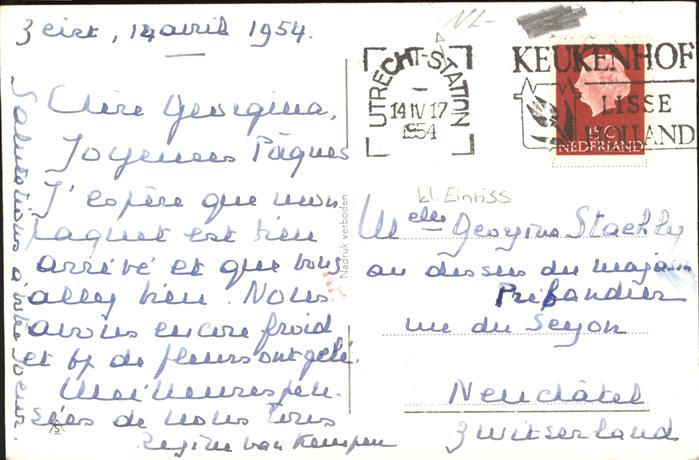 Zeist, 14 avril 1954.
Chère Georgina,
Joyeuses Pâques
J'espère que mon
paquet est bien
arrivé et que vous
allez bien. Nous
avons encore froid
et bp de fleurs ont gelé.
Meilleures pen-
sées de nous tous
Regine van Kempen
Salutations à votre soeur.
Nadruk verboden
NL-
UTRECHT-STATION
14 IV 17
1954
KEUKENHOF
LISSE
HOLLAND
15 C
NEDERLAND
kl. Einriss
Melle Georgina Staehly
au dessus du magasin
rue du Seyon
Neuchâtel
Zwitserland